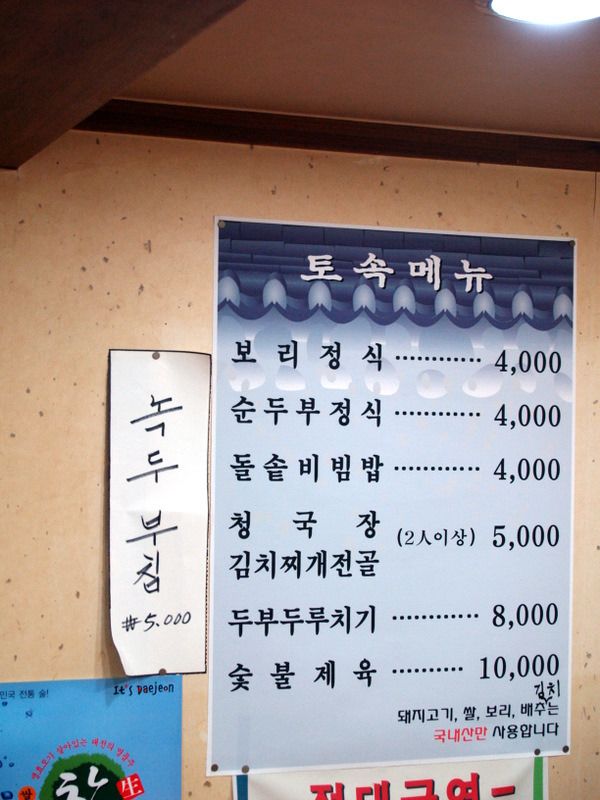 토속메뉴
보리정식 ············ 4,000
순두부정식 ············ 4,000
돌솥비빔밥 ············ 4,000
청국장 (2人이상) 5,000
김치찌개전골
두부두루치기 ············ 8,000
숯불제육 ·········· 10,000
김치
돼지고기, 쌀, 보리, 배추는
국내산만 사용합니다
녹두부침
₩5.000
민국 전통 술!
It's Daejeon
참
生
절대금연